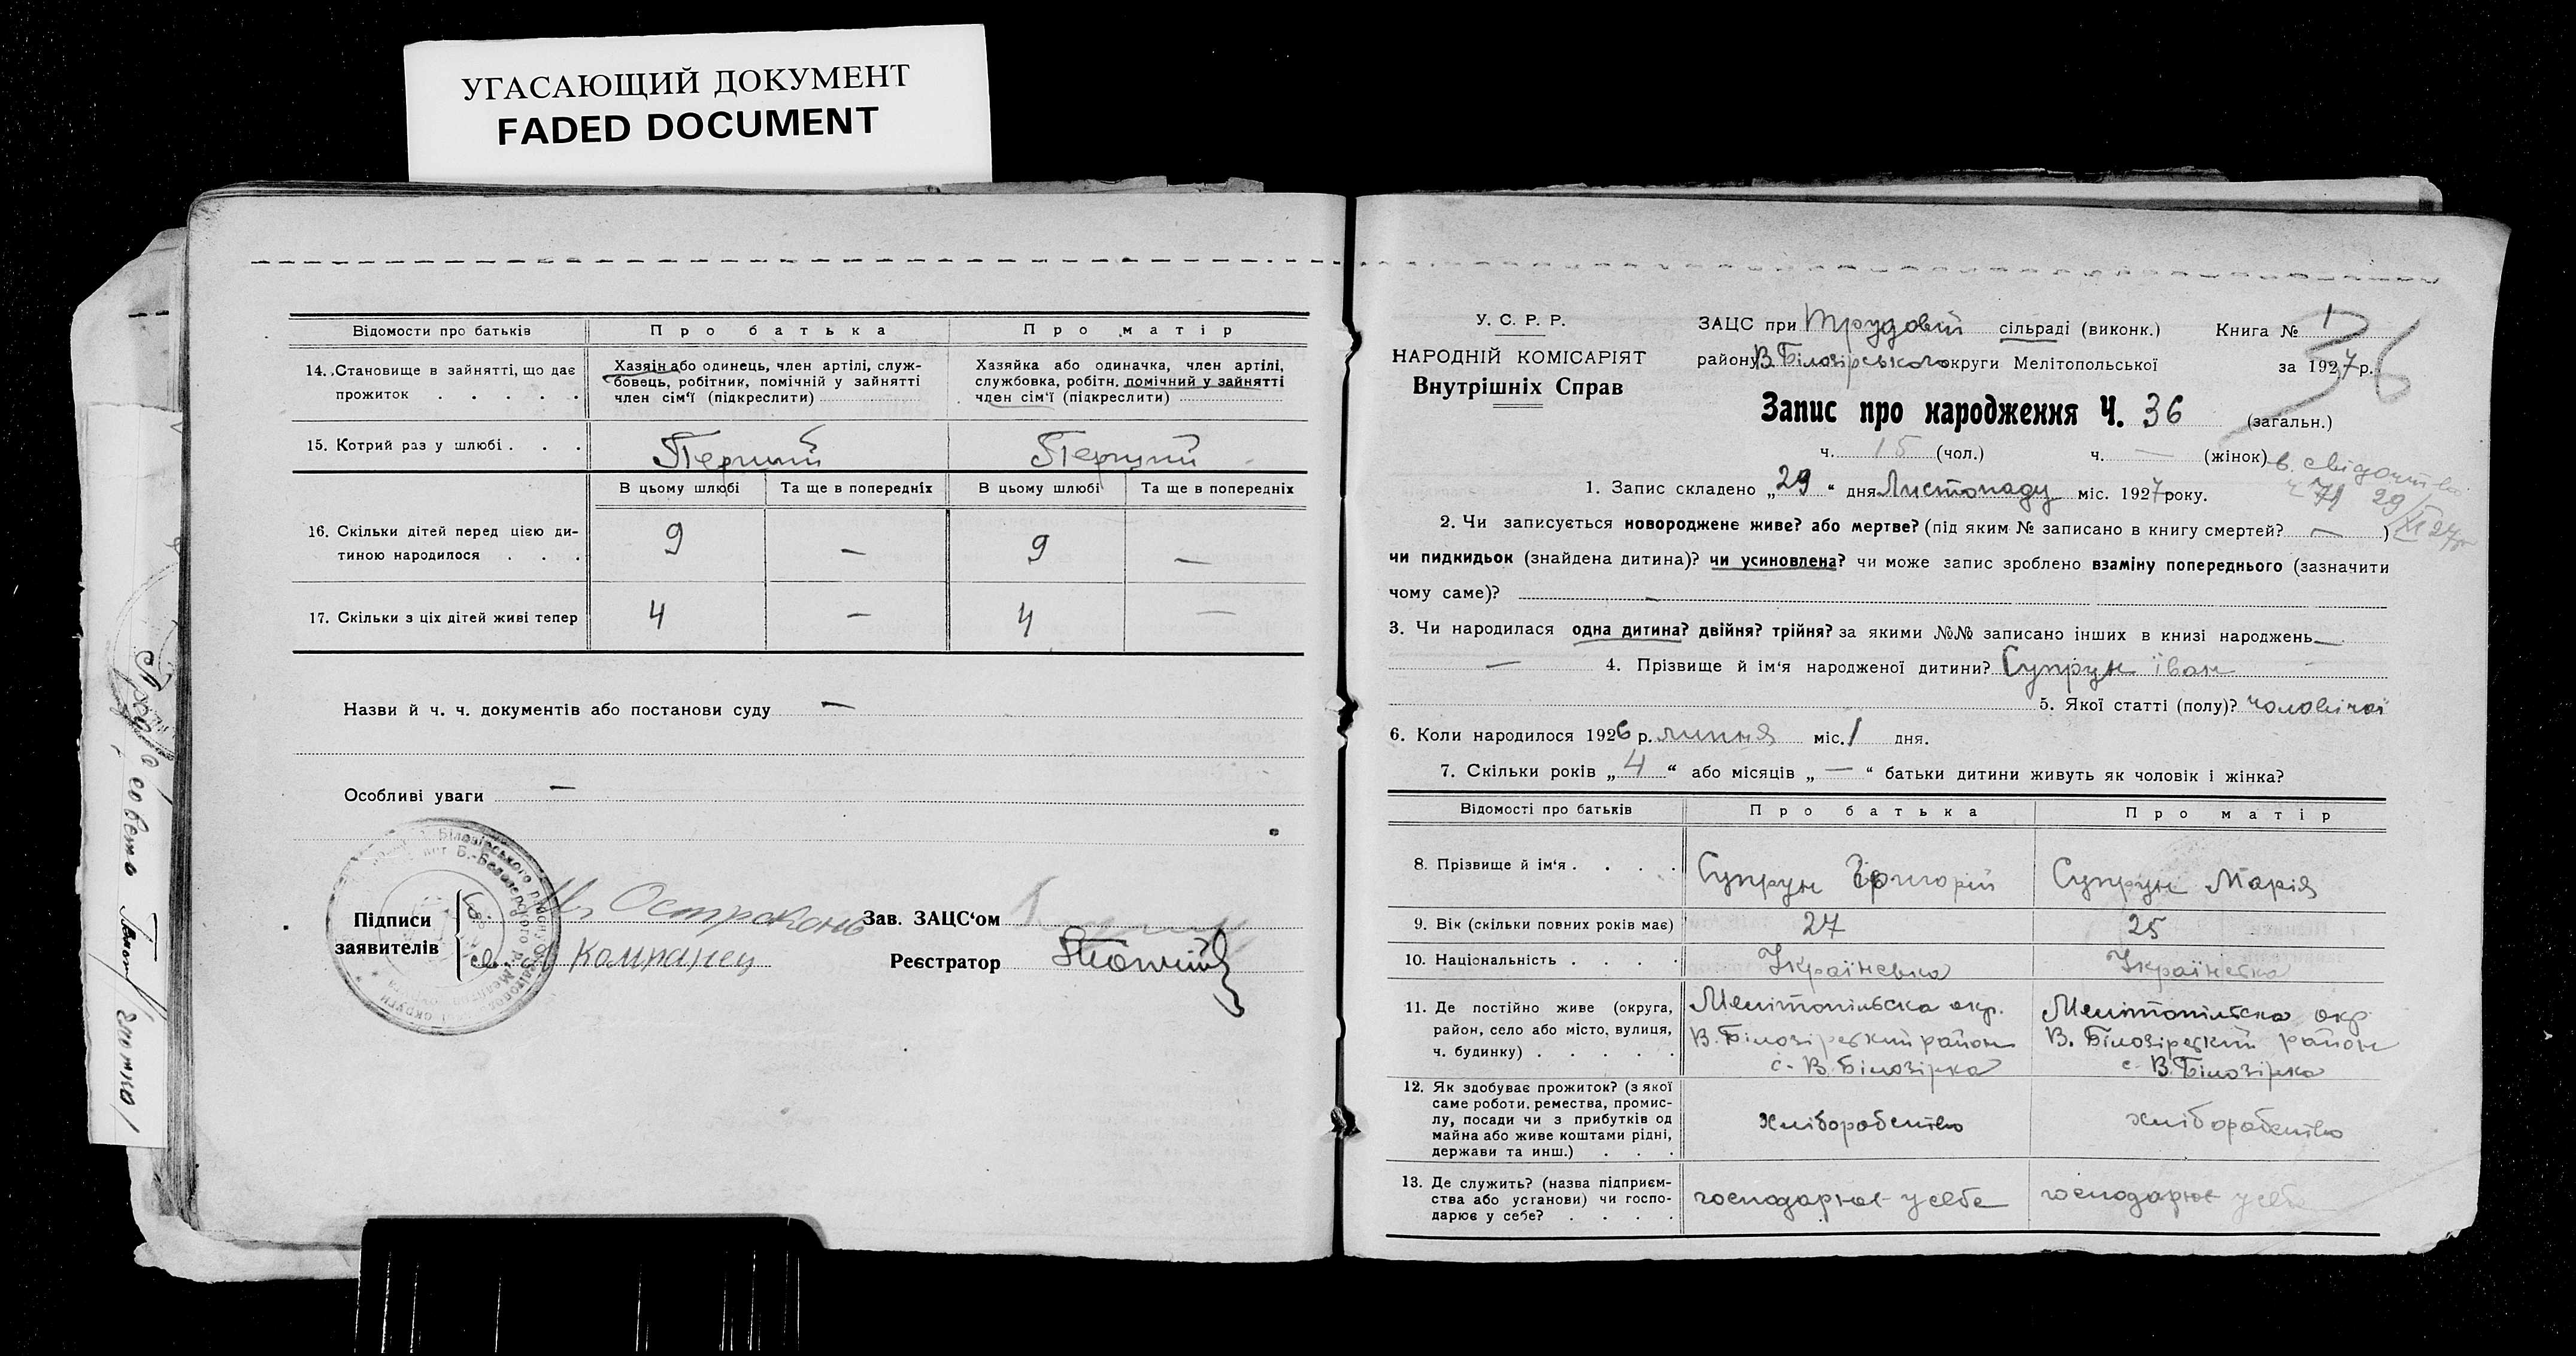 УГАСАЮЩИЙ ДОКУМЕНТ
FADED DOCUMENT
Відомости про батьків
Про батька
Про матір
14. Становище в зайнятті, що дає
прожиток . . . . .
Хазяін або одинець, член артілі, служ-
бовець, робітник, помічній у зайнятті
член сім'ї (підкреслити)
Хазяйка або одиначка, член артілі,
службовка, робітн. помічний у зайнятті
член сім'ї (підкреслити)
15. Котрий раз у шлюбі . . .
Перший
Перший
В цьому шлюбі
Та ще в попередніх
В цьому шлюбі
Та ще в попередніх
16. Скільки дітей перед цією ди-
тиною народилося . . .
9 — 9 —
17. Скільки з ціх дітей живі тепер
4 — 4 —
Назви й ч. ч. документів або постанови суду —
Особливі уваги —
Підписи
заявителів
Компанец
Зав. ЗАЦС'ом
Реєстратор
У. С. Р. Р.
НАРОДНІЙ КОМІСАРІЯТ
Внутрішніх Справ
ЗАЦС при Трудовій сільраді (виконк.) Книга № 1
району В. Білозірського округи Мелітопольської за 1927 р.
36
Запис про народження Ч. 36 (загальн.)
ч. 15 (чол.) ч. — (жінок)
1. Запис складено „29“ дня Листопаду міс. 1927 року.
2. Чи записується новороджене живе? або мертве? (під яким № записано в книгу смертей? — )
чи пидкидьок (знайдена дитина)? чи усиновлена? чи може запис зроблено взаміну попереднього (зазначити
чому саме)? —
3. Чи народилася одна дитина? двійня? трійня? за якими №№ записано інших в книзі народжень —
— 4. Прізвище й ім'я народженої дитини? Супрун Іван
5. Якої статті (полу)? чоловічої
6. Коли народилося 1926 р. липня міс. 1 дня.
7. Скільки років „4“ або місяців „—“ батьки дитини живуть як чоловік і жінка?
Відомості про батьків
Про батька
Про матір
8. Прізвище й ім'я . . . .
Супрун Григорій
Супрун Марія
9. Вік (скільки повних років має)
27
25
10. Національність . . . .
Українська
Українська
11. Де постійно живе (округа,
район, село або місто, вулиця,
ч. будинку) . . . . .
Мелітопільска окр.
В. Білозірський район
с. В. Білозірка
Мелітопільска окр.
В. Білозірский район
с. В. Білозірка
12. Як здобуває прожиток? (з якої
саме роботи, ремества, промис-
лу, посади чи з прибутків од
майна або живе коштами рідні,
держави та инш.) . . .
хліборобство
хліборобство
13. Де служить? (назва підприєм-
ства або установи) чи госпо-
дарює у себе? . . . .
господарює у себе
господарює у себе